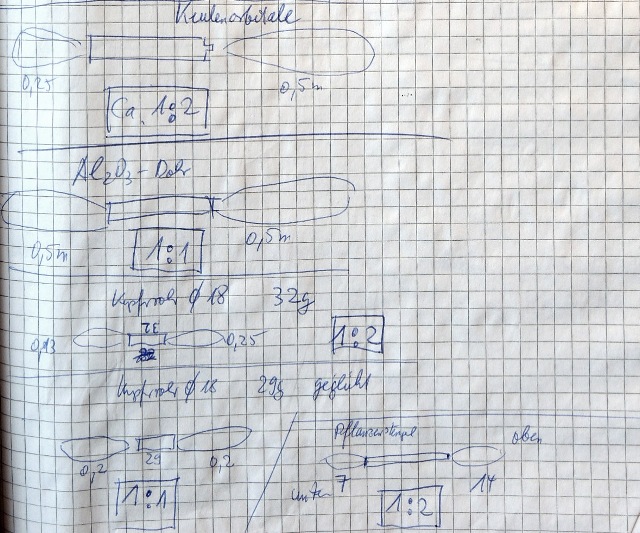 Keulenorbitale
0,25 0,5m
Ca. 1:2
Al2O3-Rohr
0,5m 0,5m
1:1
Kupfrrohr ∅18 32g
0,13 32 0,25 1:2
Kupfrrohr ∅18 29g geglüht
0,2 29 0,2
1:1
Pflanzenstengel oben
unten 7 14
1:2